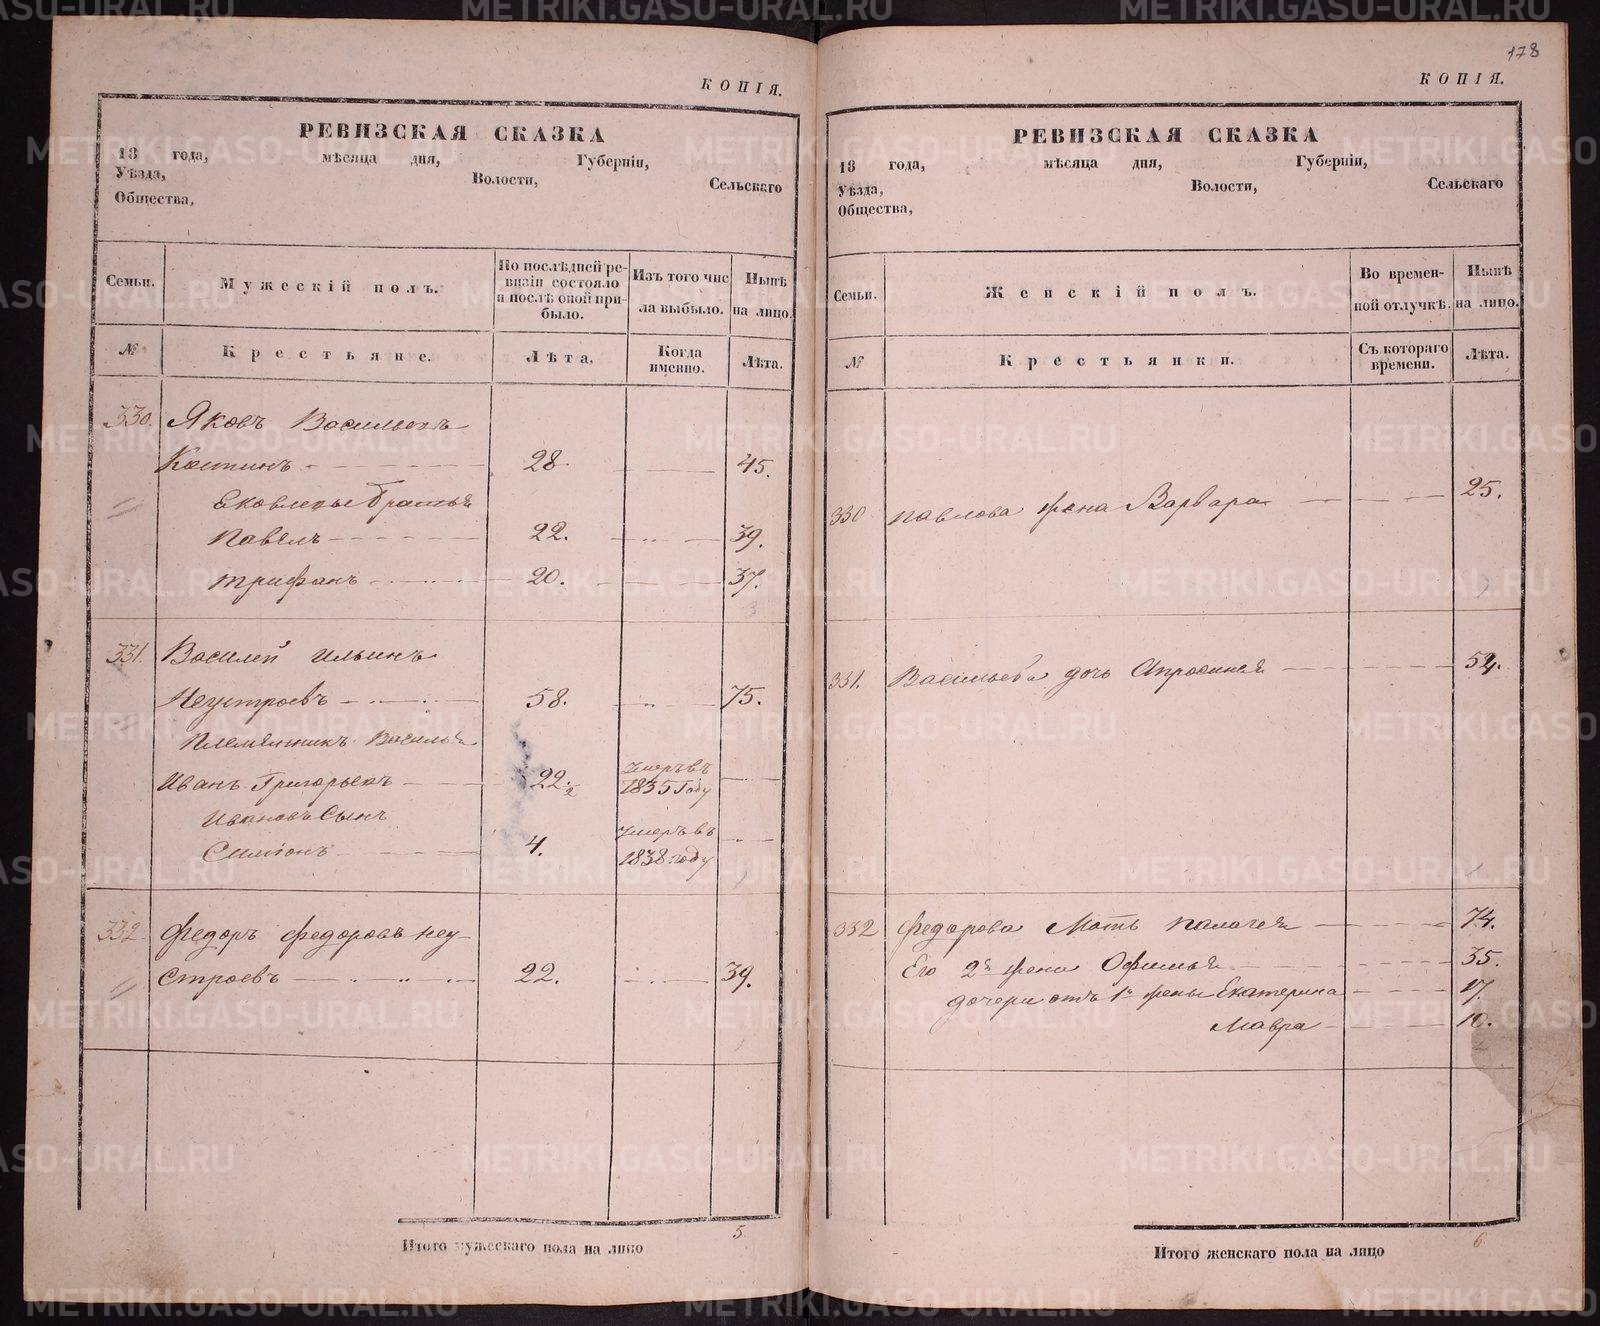 178
КОПІЯ.
РЕВИЗСКАЯ СКАЗКА
18 года, мѣсяца дня, Губерніи,
Уѣзда, Волости, Сельскаго
Общества,
Семьи.
Мужескій полъ.
По послѣдней ре-
визіи состояло
и послѣ оной при-
было.
Изъ того чис
ла выбыло.
Нынѣ
на лицо.
№
Крестьяне.
Лѣта.
Когда
именно.
Лѣта.
330. Яковъ Васильевъ
Костинъ 28. 45.
Ековлевы Братья
Павелъ 22. 39.
Трифанъ 20. 37.
3
331. Василей Ильинъ
Неустроевъ 58. 75.
Племянникъ Василья
Иванъ Григорьевъ 22½ Умеръ въ 1835 Году
Ивановъ Сынъ
Симіонъ 4. Умеръ въ 1838 году
1
332. Федоръ Федоровъ Неу
строевъ 22. 39.
1
5
Итого мужескаго пола на лицо
КОПІЯ.
РЕВИЗСКАЯ СКАЗКА
18 года, мѣсяца дня, Губерніи,
Уѣзда, Волости, Сельскаго
Общества,
Семьи.
Женскій полъ.
Во времен-
ной отлучкѣ.
Нынѣ
на лицо.
№
Крестьянки.
Съ котораго
времени.
Лѣта.
330 Павлова жена Варвара 25.
1
331. Васильева дочь Апросинья 54.
1
332 Федорова Мать Палагея 74.
Его 2я жена Офимья 35.
дочери отъ 1й жены Екатерина 17.
Мавра 10.
6
Итого женскаго пола на лицо
METRIKI.GASO-URAL.RU